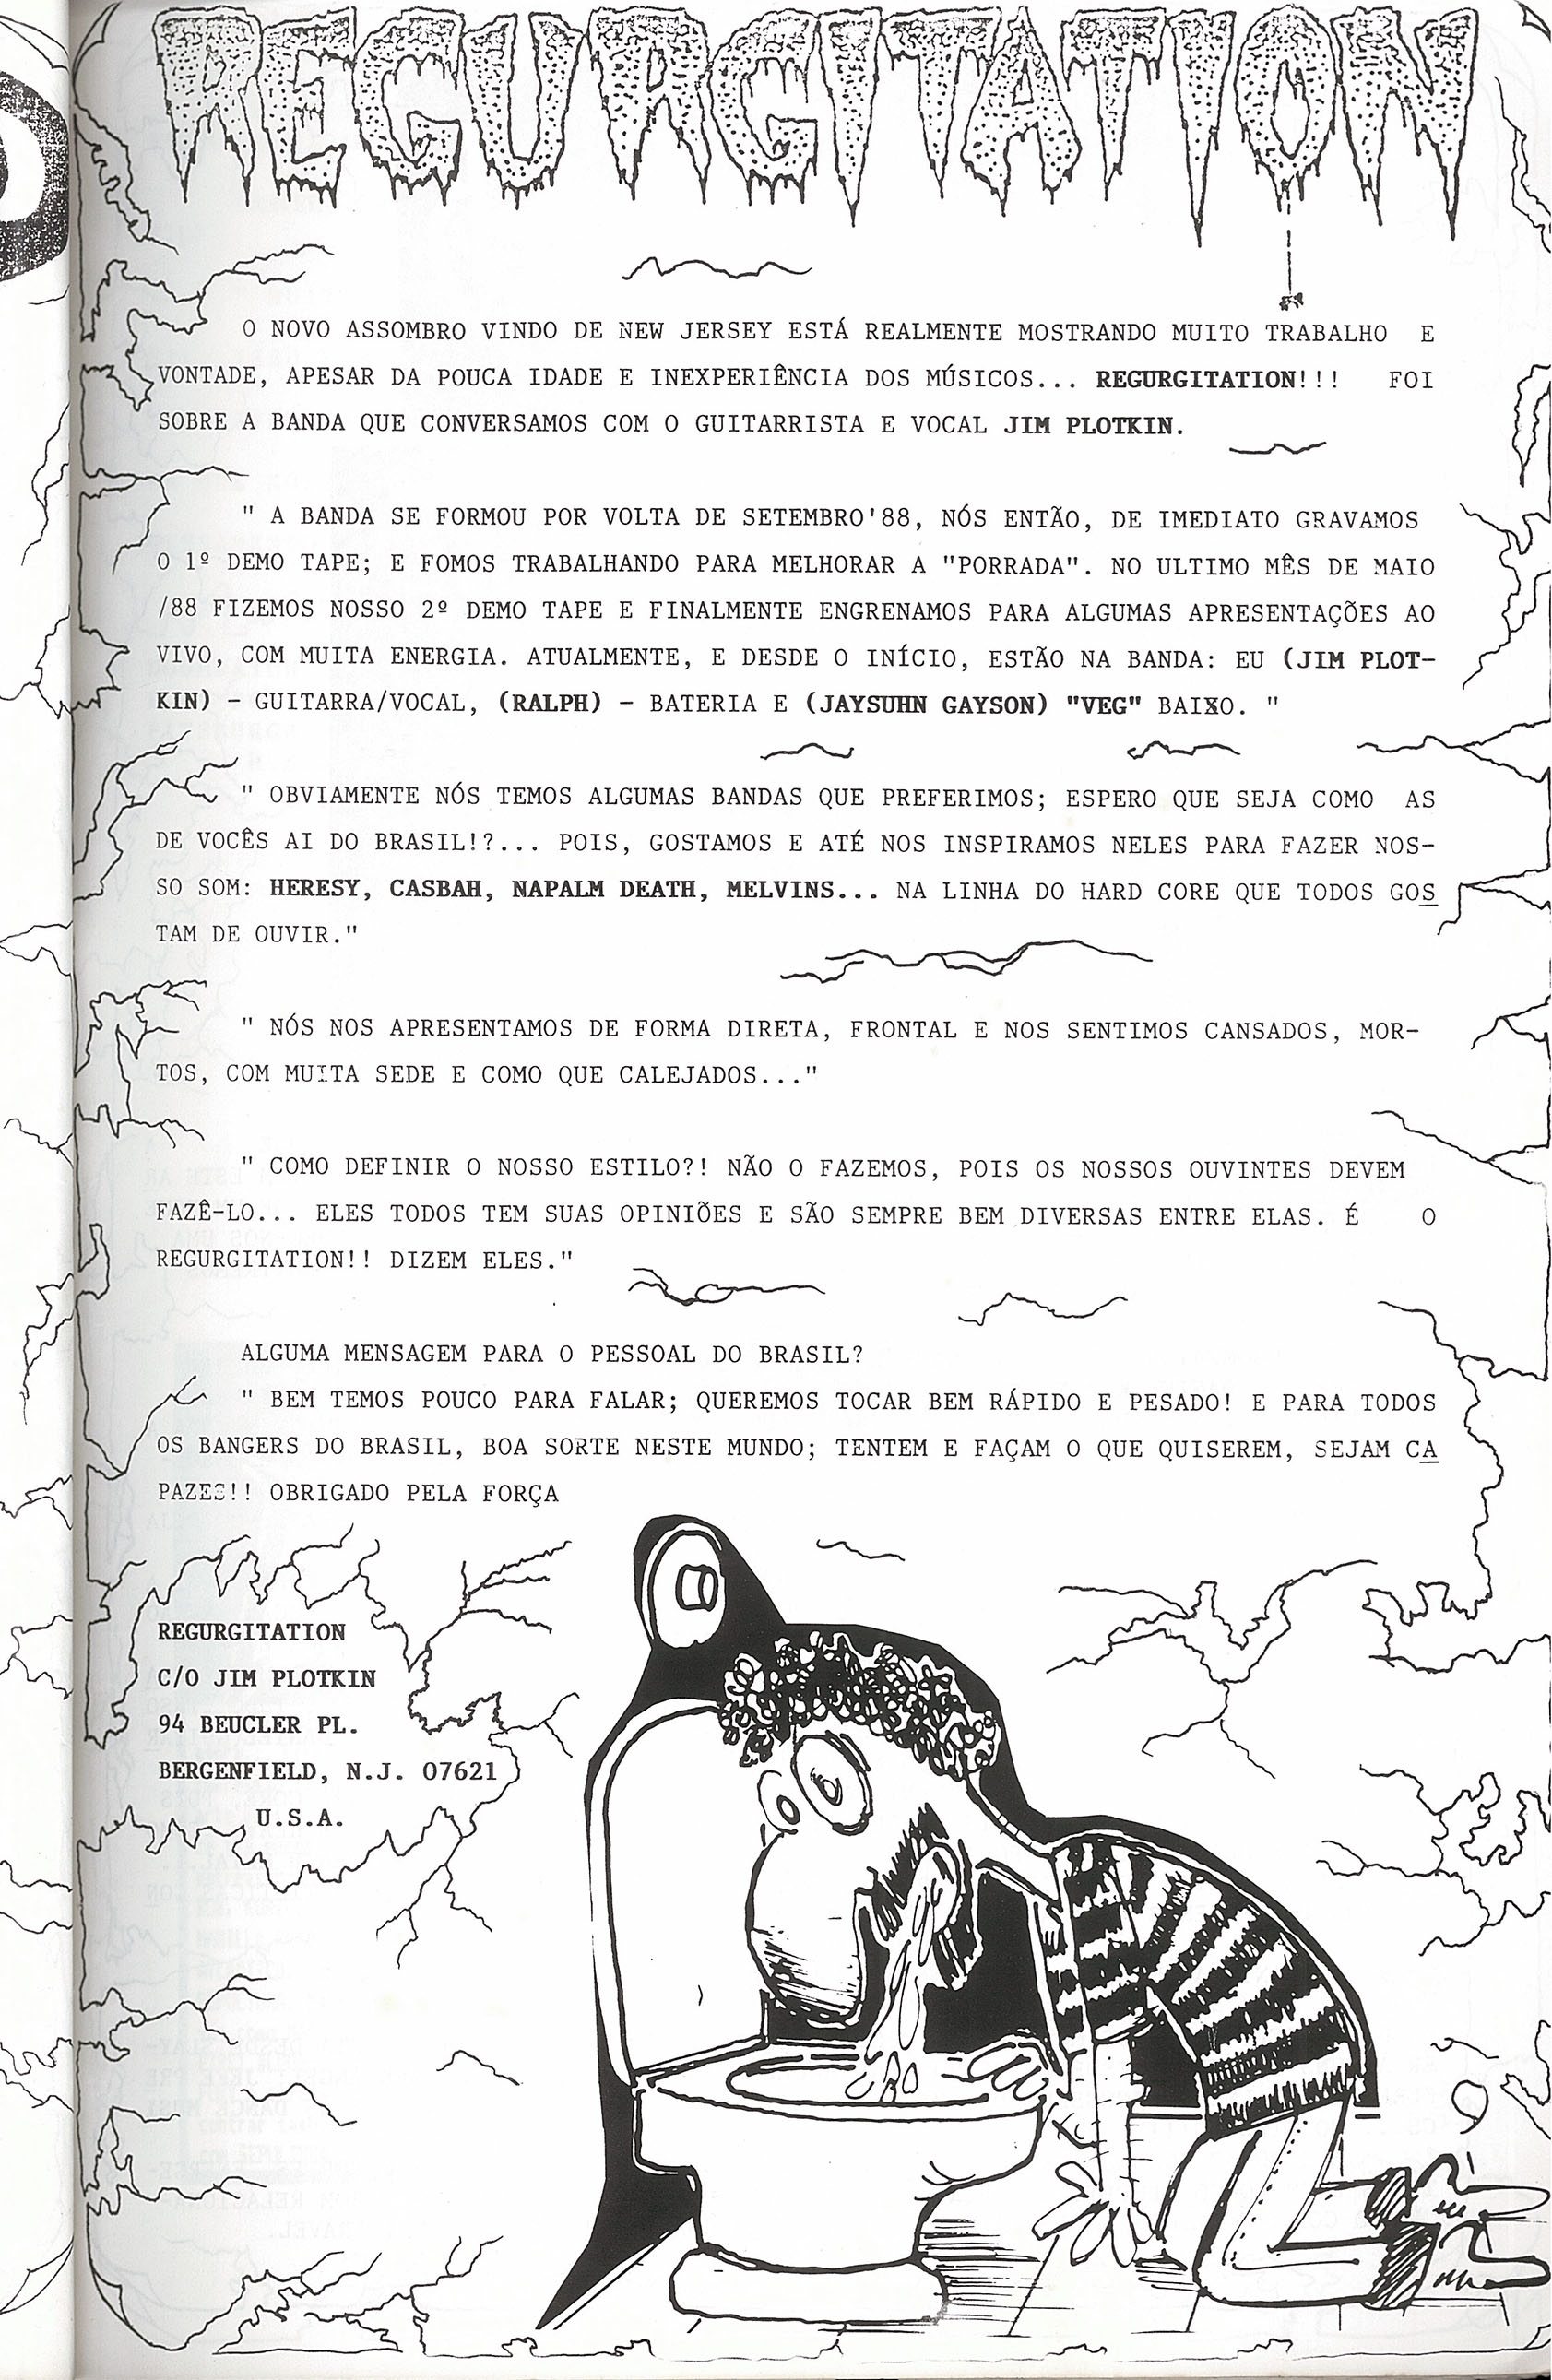 REGURGITATION
O NOVO ASSOMBRO VINDO DE NEW JERSEY ESTÁ REALMENTE MOSTRANDO MUITO TRABALHO E
VONTADE, APESAR DA POUCA IDADE E INEXPERIÊNCIA DOS MÚSICOS... REGURGITATION!!! FOI
SOBRE A BANDA QUE CONVERSAMOS COM O GUITARRISTA E VOCAL JIM PLOTKIN.
" A BANDA SE FORMOU POR VOLTA DE SETEMBRO'88, NÓS ENTÃO, DE IMEDIATO GRAVAMOS
O 1º DEMO TAPE; E FOMOS TRABALHANDO PARA MELHORAR A "PORRADA". NO ULTIMO MÊS DE MAIO
/88 FIZEMOS NOSSO 2º DEMO TAPE E FINALMENTE ENGRENAMOS PARA ALGUMAS APRESENTAÇÕES AO
VIVO, COM MUITA ENERGIA. ATUALMENTE, E DESDE O INÍCIO, ESTÃO NA BANDA: EU (JIM PLOT-
KIN) - GUITARRA/VOCAL, (RALPH) - BATERIA E (JAYSUHN GAYSON) "VEG" BAIXO. "
" OBVIAMENTE NÓS TEMOS ALGUMAS BANDAS QUE PREFERIMOS; ESPERO QUE SEJA COMO AS
DE VOCÊS AI DO BRASIL!?... POIS, GOSTAMOS E ATÉ NOS INSPIRAMOS NELES PARA FAZER NOS-
SO SOM: HERESY, CASBAH, NAPALM DEATH, MELVINS... NA LINHA DO HARD CORE QUE TODOS GOS
TAM DE OUVIR."
" NÓS NOS APRESENTAMOS DE FORMA DIRETA, FRONTAL E NOS SENTIMOS CANSADOS, MOR-
TOS, COM MUITA SEDE E COMO QUE CALEJADOS..."
" COMO DEFINIR O NOSSO ESTILO?! NÃO O FAZEMOS, POIS OS NOSSOS OUVINTES DEVEM
FAZÊ-LO... ELES TODOS TEM SUAS OPINIÕES E SÃO SEMPRE BEM DIVERSAS ENTRE ELAS. É O
REGURGITATION!! DIZEM ELES."
ALGUMA MENSAGEM PARA O PESSOAL DO BRASIL?
" BEM TEMOS POUCO PARA FALAR; QUEREMOS TOCAR BEM RÁPIDO E PESADO! E PARA TODOS
OS BANGERS DO BRASIL, BOA SORTE NESTE MUNDO; TENTEM E FAÇAM O QUE QUISEREM, SEJAM CA
PAZES!! OBRIGADO PELA FORÇA
REGURGITATION
C/O JIM PLOTKIN
94 BEUCLER PL.
BERGENFIELD, N.J. 07621
U.S.A.